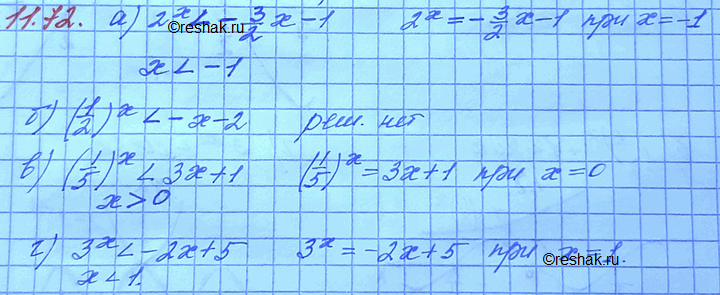 11.72. а) 2^x < -3/2 x - 1    2^x = -3/2 x - 1 при x = -1
©reshak.ru
x < -1
б) (1/2)^x < -x - 2    реш. нет
в) (1/5)^x < 3x + 1    (1/5)^x = 3x + 1 при x = 0
x > 0
г) 3^x < -2x + 5    3^x = -2x + 5 при x = 1.
©reshak.ru
x < 1.